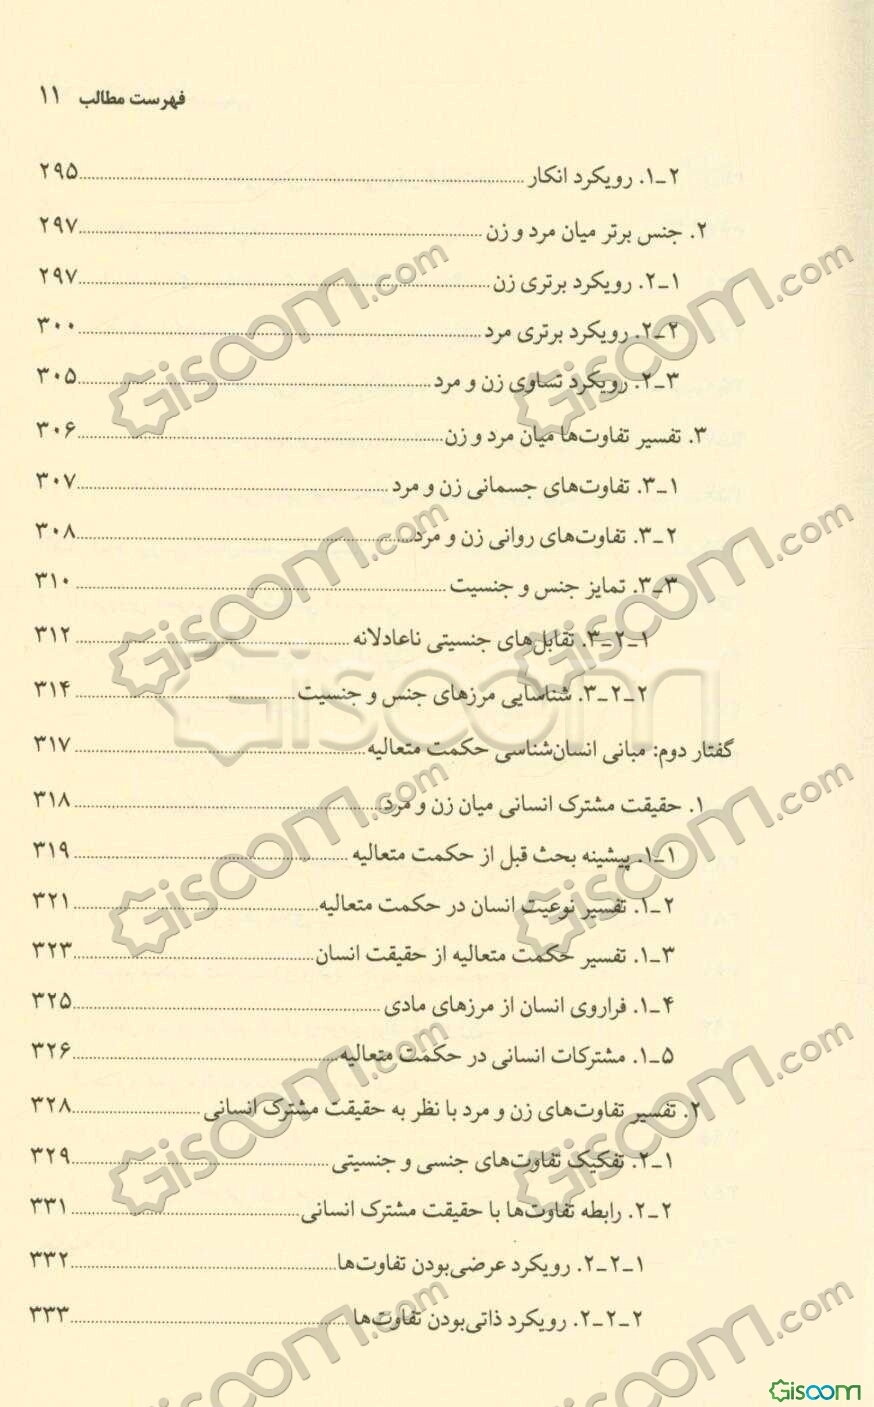 فهرست مطالب ۱۱
۲ـ۱. رویکرد انکار ........ ۲۹۵
۲. جنس برتر میان مرد و زن ........ ۲۹۷
۱ـ۲. رویکرد برتری زن ........ ۲۹۷
۲ـ۲. رویکرد برتری مرد ........ ۳۰۰
۳ـ۲. رویکرد تساوی زن و مرد ........ ۳۰۵
۳. تفسیر تفاوت‌ها میان مرد و زن ........ ۳۰۶
۱ـ۳. تفاوت‌های جسمانی زن و مرد ........ ۳۰۷
۲ـ۳. تفاوت‌های روانی زن و مرد ........ ۳۰۸
۳ـ۳. تمایز جنس و جنسیت ........ ۳۱۰
۱ـ۲ـ۳. تقابل‌های جنسیتی ناعادلانه ........ ۳۱۲
۲ـ۲ـ۳. شناسایی مرزهای جنس و جنسیت ........ ۳۱۴
گفتار دوم: مبانی انسان‌شناسی حکمت متعالیه ........ ۳۱۷
۱. حقیقت مشترک انسانی میان زن و مرد ........ ۳۱۸
۱ـ۱. پیشینه بحث قبل از حکمت متعالیه ........ ۳۱۹
۲ـ۱. تفسیر نوعیت انسان در حکمت متعالیه ........ ۳۲۱
۳ـ۱. تفسیر حکمت متعالیه از حقیقت انسان ........ ۳۲۳
۴ـ۱. فراروی انسان از مرزهای مادی ........ ۳۲۵
۵ـ۱. مشترکات انسانی در حکمت متعالیه ........ ۳۲۶
۲. تفسیر تفاوت‌های زن و مرد با نظر به حقیقت مشترک انسانی ........ ۳۲۸
۱ـ۲. تفکیک تفاوت‌های جنسی و جنسیتی ........ ۳۲۹
۲ـ۲. رابطه تفاوت‌ها با حقیقت مشترک انسانی ........ ۳۳۱
۱ـ۲ـ۲. رویکرد عرضی‌بودن تفاوت‌ها ........ ۳۳۲
۲ـ۲ـ۲. رویکرد ذاتی‌بودن تفاوت‌ها ........ ۳۳۳
Giscom.com
Giscom
Giscom